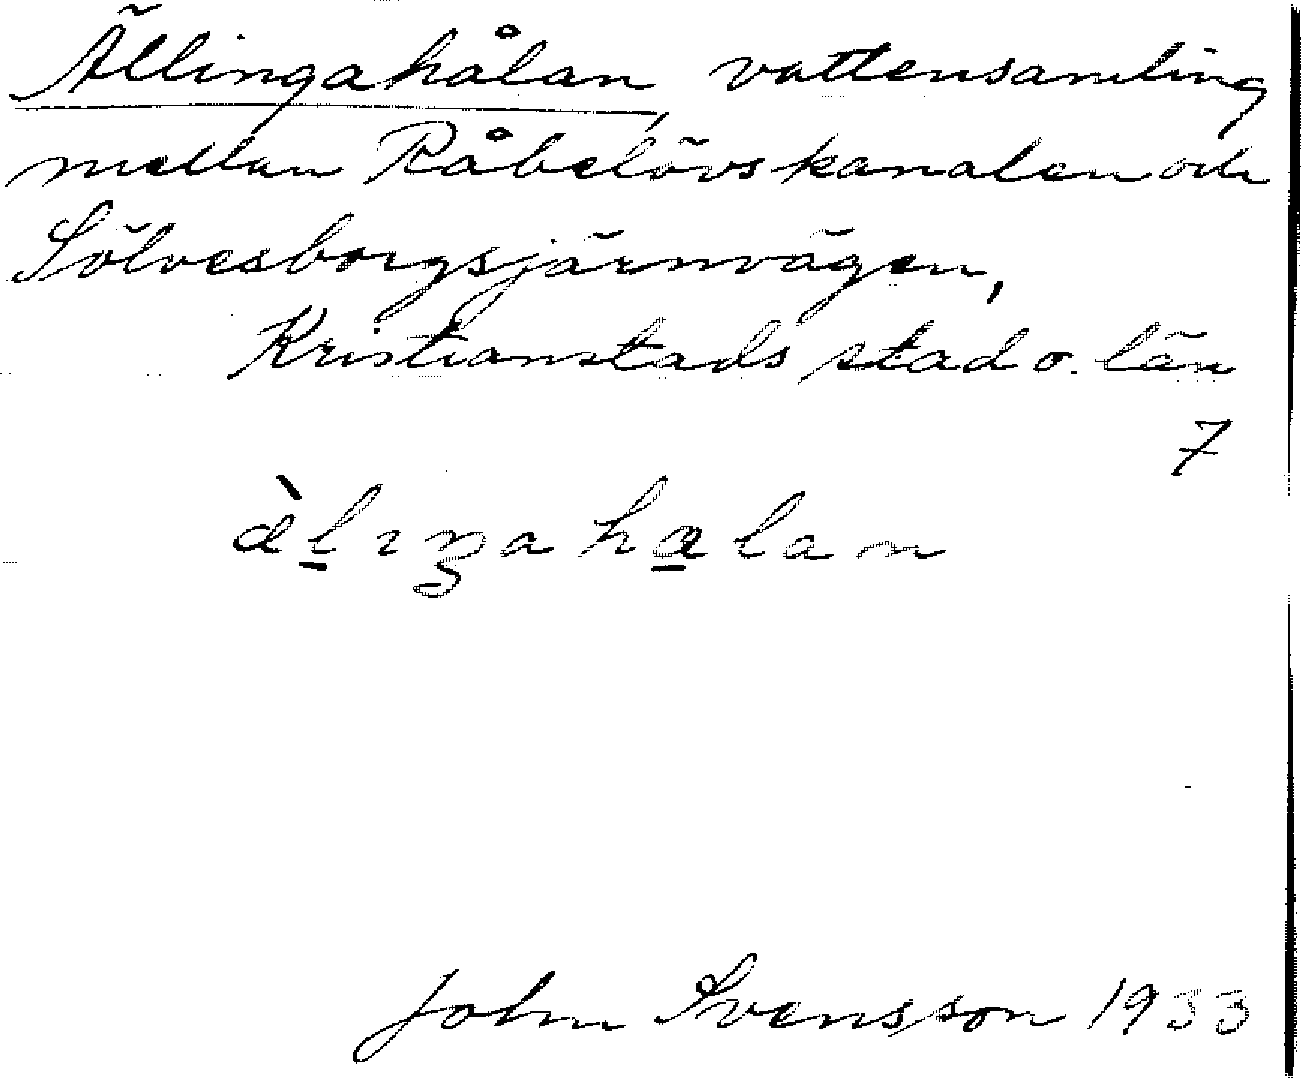 Ällingahålan, vattensamling
mellan Råbelövskanalen och
Sölvesborgsjärnvägen,
Kristianstads stad o. län
7
æ̀l̲ıŋaha̲lan
John Svensson 1933